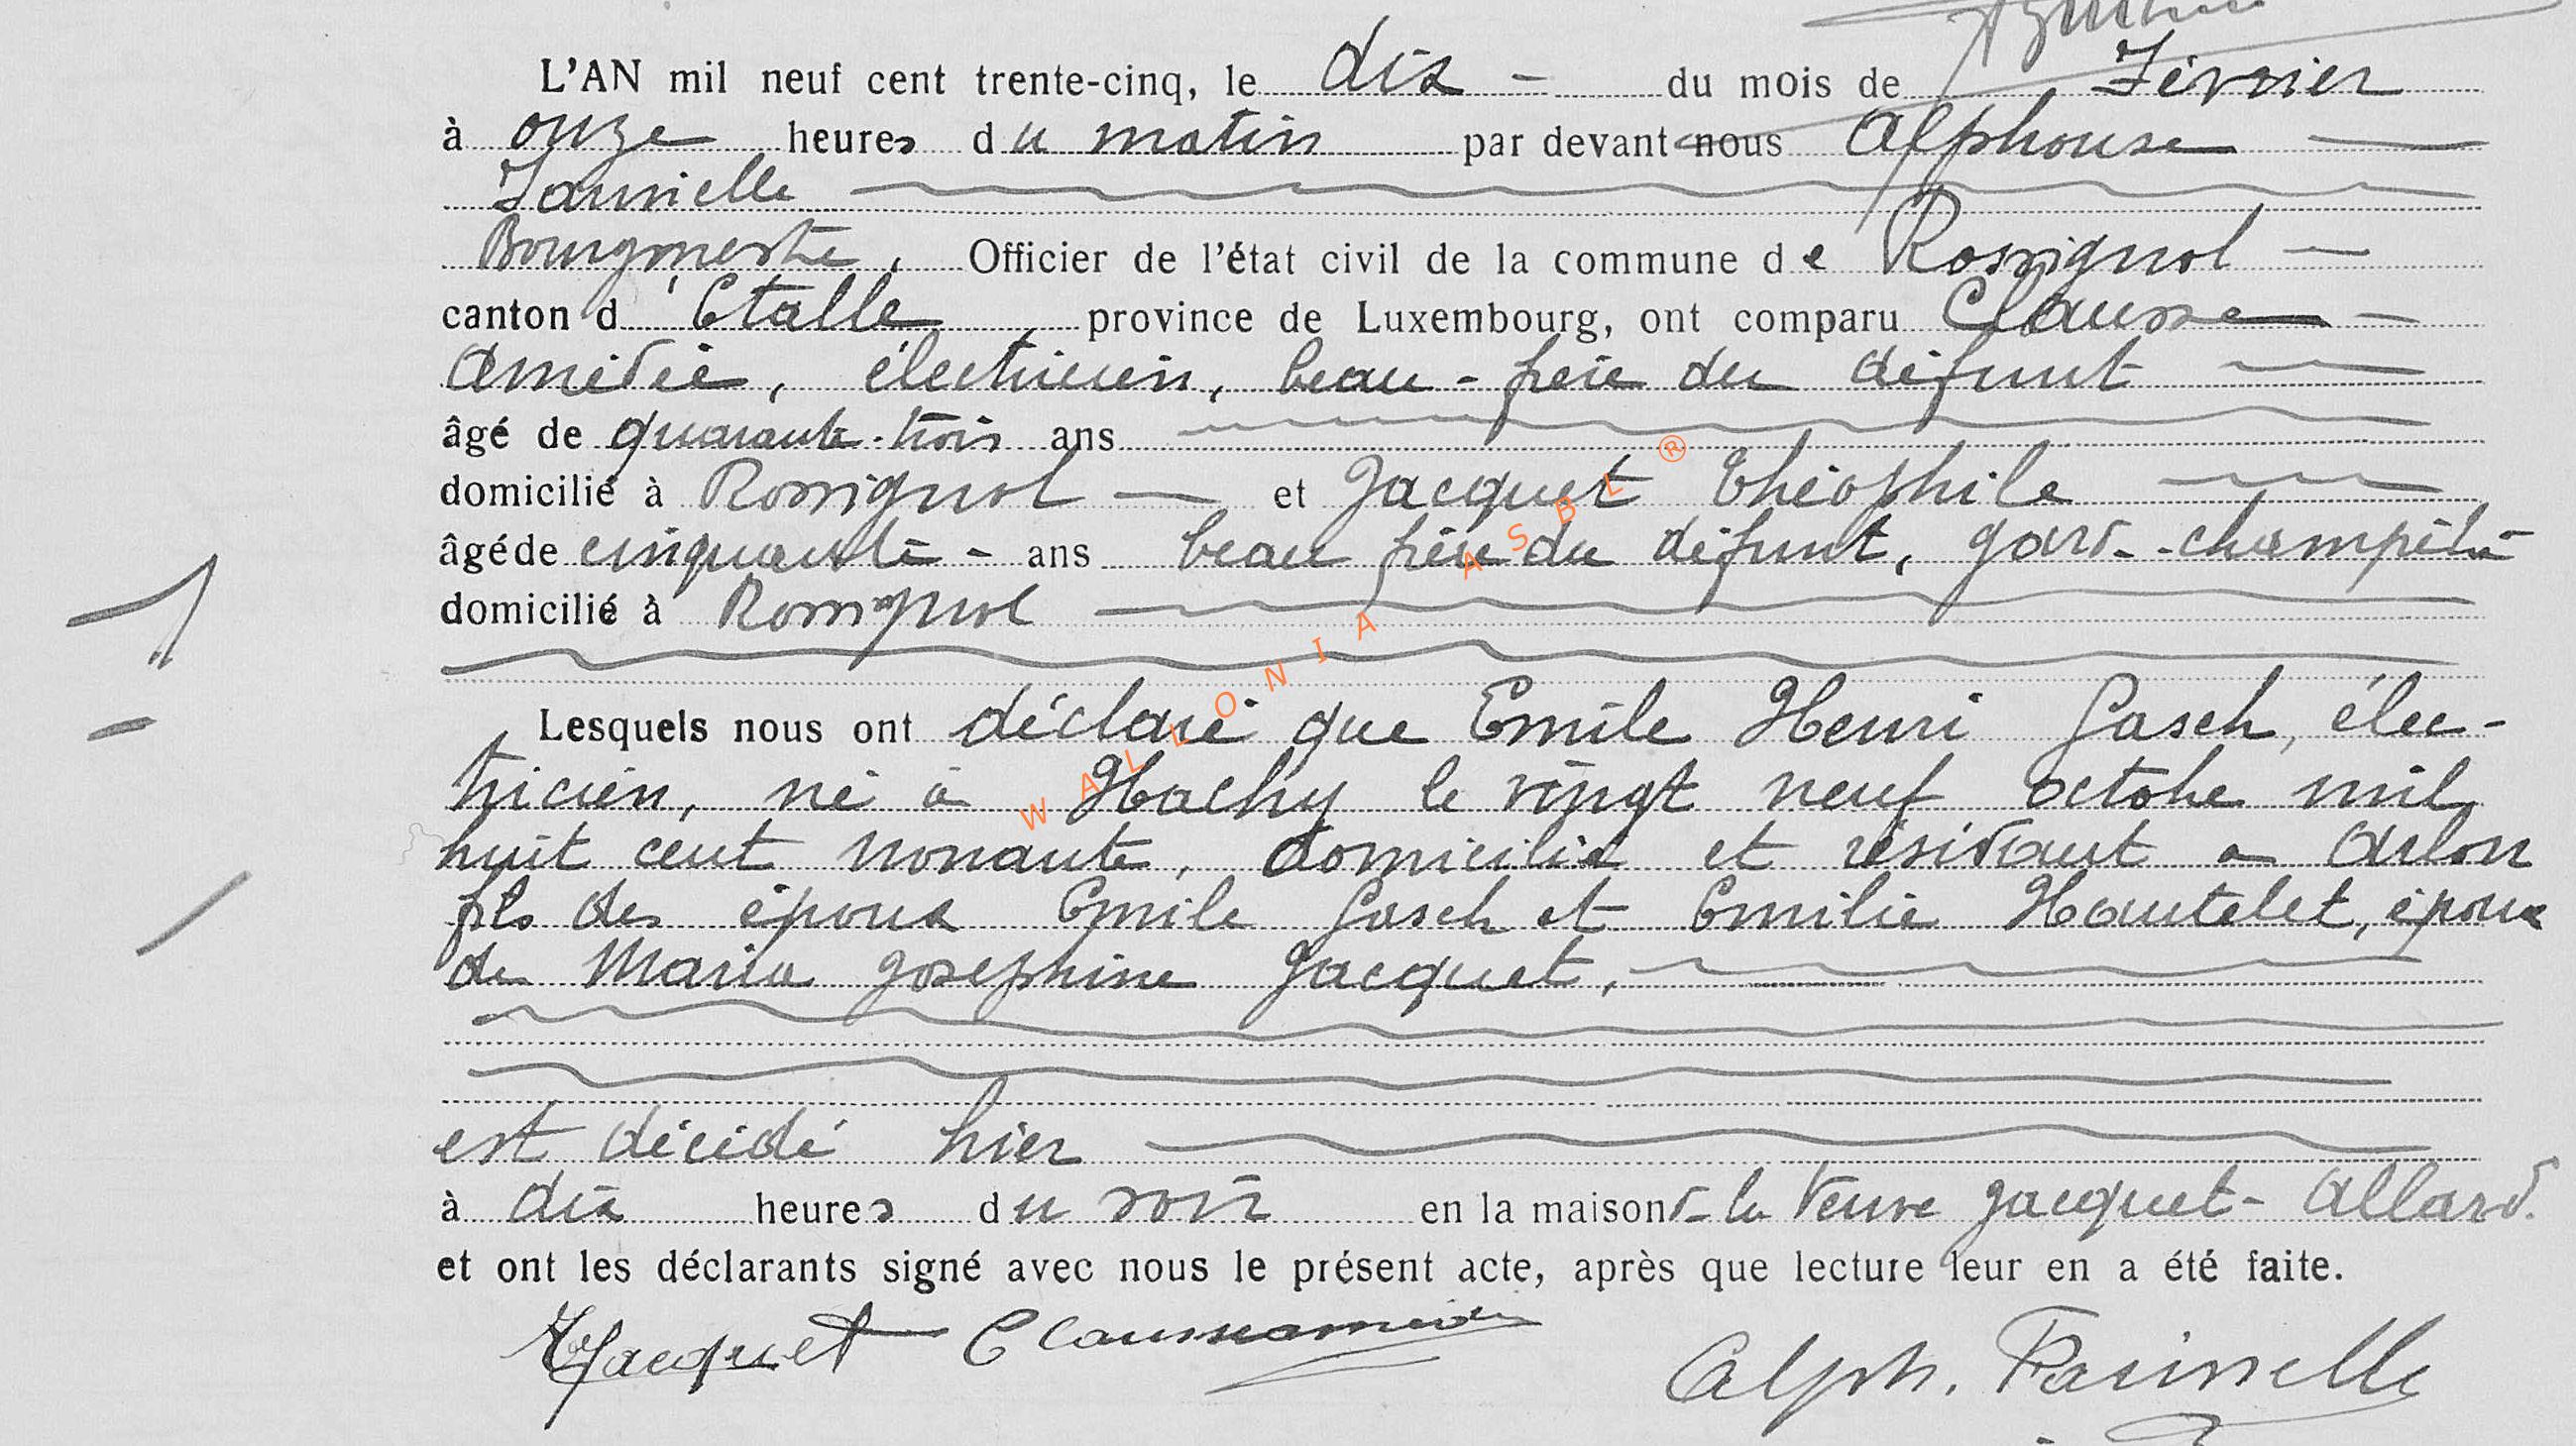 L'AN mil neuf cent trente-cinq, le dix - du mois de Février
à onze heures du matin par devant nous Alphonse
Farinelle
Bourgmestre, Officier de l'état civil de la commune de Rossignol
canton d'Etalle province de Luxembourg, ont comparu Clausse
Amédée, électricien, beau-frère du défunt
âgé de quarante-trois ans
domicilié à Rossignol et Jacquet Théophile
âgé de cinquante - ans beau frère du défunt, gard-champêtre
domicilié à Rossignol
Lesquels nous ont déclaré que Emile Henri Gasch, élec-
tricien, né à Hachy le vingt neuf octobre mil
huit cent nonante, domicilié et résidant à Arlon
fils des époux Emile Gasch et Emilie Hautelet, époux
de Maria Joséphine Jacquet,
est décédé hier
à dix heures du soir en la maison de la Veuve Jacquet-Allard.
et ont les déclarants signé avec nous le présent acte, après que lecture leur en a été faite.
ThJacquet Clausseamédée
Alph. Farinelle
WALLONIA ASBL ®